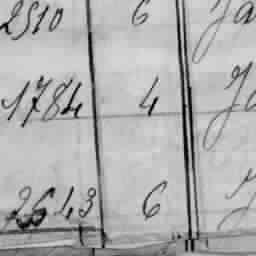 2510 6 Ja
1784 4 Jo
2643 6